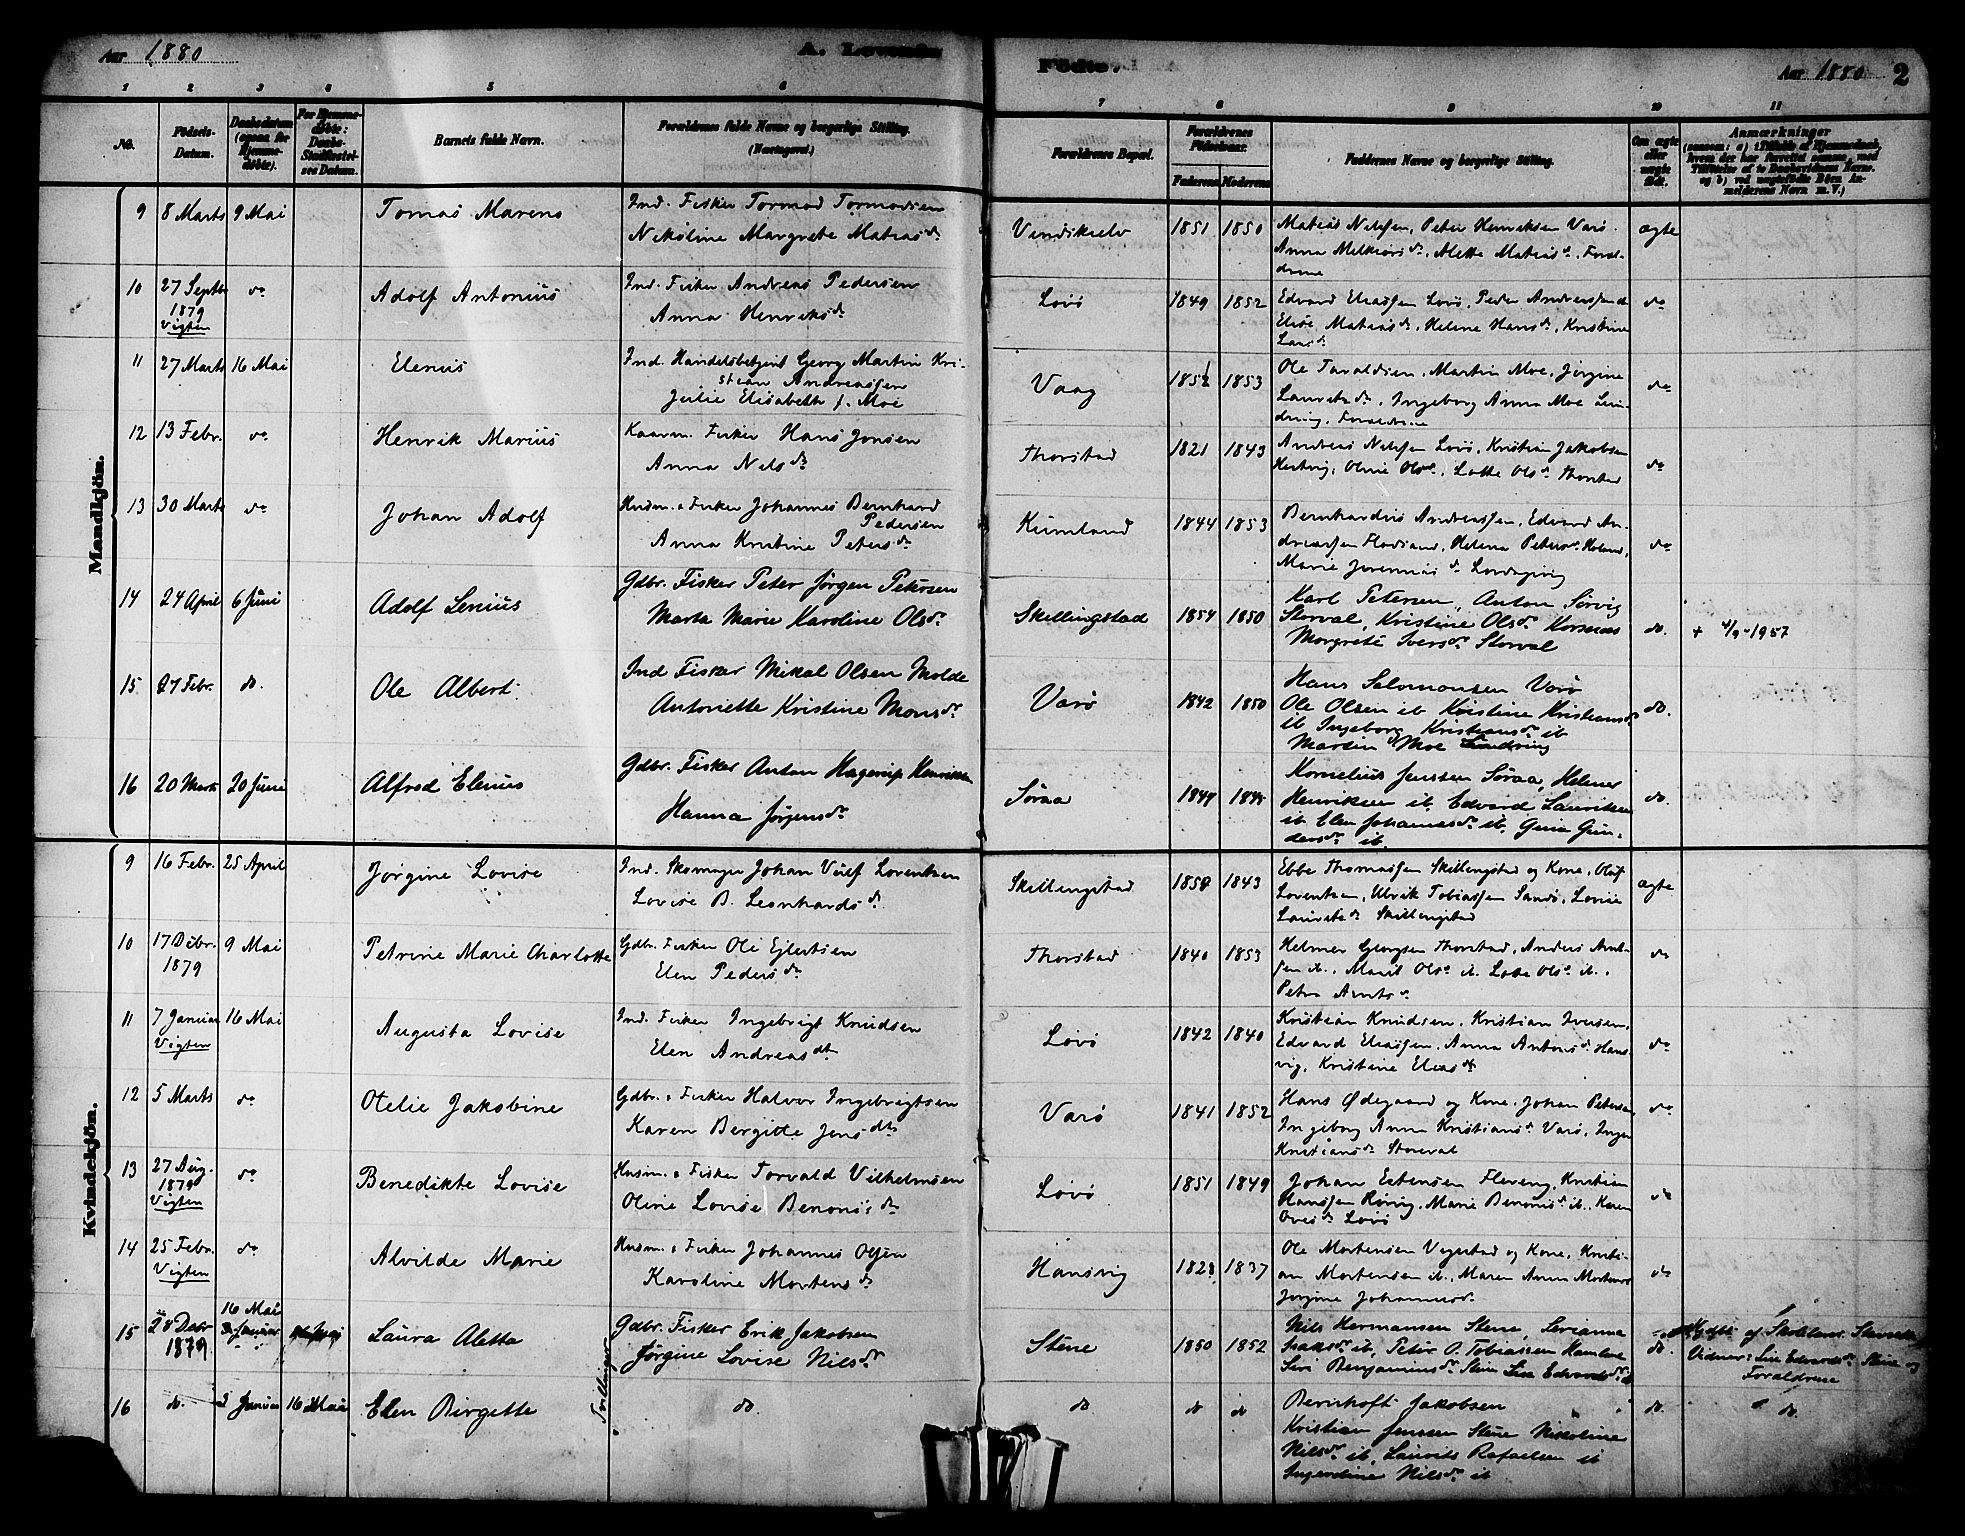 Aar 1880
A. Levende
Födte.
Aar 1880
2
1 2 3 4 5 6 7 8 9 10 11
No.
Födsels-
Datum.
Daabsdatum
(ogsaa for
Hjemme-
döbte).
For Hjemme-
döbte:
Daabs-
Stadfæstel-
ses Datum.
Barnets fulde Navn.
Forældrenes fulde Navne og borgerlige Stilling.
Forældrenes Bopæl.
Forældrenes
Födselsaar.
Faderens Moderens
Faddernes Navne og borgerlige Stilling.
Om ægte
eller
uægte
født.
Anmærkninger
Mandkjön.
9 8 Marts 9 Mai Tomas Marens
Ind. Fisker Tormod Tormodsen
Nikoline Margrete Matiasdr
1851 1850
Matias Nilssen, Peter Henriksen Varø.
Anna Melkiorsdr, Alette Matiasdr, Foræl-
drene
ægte
10 27 Septbr
1879
Vigten
do Adolf Antonius
Ind. Fisker Andreas Pedersen
Anna Henriksdr
Lovø 1849 1852
Edvard Eliassen Lovø, Peder Andreassen
Elise Matiasdr, Helene Hansdr, Kristine
Larsdr
do
11 27 Marts 16 Mai Elenus
Ind. Handelsbetjent Georg Martin Kri-
stian Andreassen
Julie Elisabeth f. Moe
Vaag 1851 1853
Ole Taraldsen, Martin Moe, Jørgine
Lauritsdr, Ingeborg Anna Moe Lin-
dring, Forældrene
do
12 13 Febr. do Henrik Marius
Kaarm. Fisker Hans Jonsen
Anna Nilsdr
Thorstad 1821 1843
Andreas Nilssen Lovø, Kristian Jakobsen
Olsdr, Lotte Olsdr Thorstad
do
13 30 Marts do Johan Adolf
Husm. & Fisker Johannes Bernhard
Pedersen
Anna Kristine Petersdr
Kumland 1844 1853
Bernhardus Andreassen, Edvard An-
dreassen Helena Petersdr
Marie
do
14 24 April 6 Juni Adolf Lenius
Gdbr. Fisker Peter Jørgen Petersen
Marta Marie Karoline Olsdr
Skillingstad 1854 1850
Karl Petersen, Anton Sørvig
Storval, Kristine Olsdr Korsnæs
Margrete Iversdr Storval
do.
+ 4/9-1957
15 27 Febr. do. Ole Albert
Ind Fisker Mikal Olsen Molde
Antoriette Kristine Monsdr
Varø 1842 1850
Hans Salomonsen Varø
Ole Olsen ib Kristine Kristiansdr
ib Ingeborg Kristiansdr ib
Martin Moe Lindring
do.
16 20 Marts 20 Juni Alfred Elenus
Gdbr. Fisker Anton Hagerup Henriksen
Hanna Jørgensdr
Søraa
Kornelius Jenssen Søraa, Helmer
Henriksen ib, Edvard Lauritsen
ib Elen Johannesdr ib, Gina Gun-
dersdr ib.
do.
Kvindekjön.
9 16 Febr. 25 April Jørgine Lovise
Ind. Skomager Johan Vulf Lorentsen
Lovise B. Leonhardsdr
Skillingstad 1843
Ebbe Thomassen Skillingstad og Kone, Oluf
Lorentsen, Ulrik Tobiassen Sandø, Lovise
Lauritsdr Skillingstad
ægte
10 17 Debr.
1879
9 Mai Petrine Marie Charlotte
Gdbr. Fisker Ole Ejlertsen
Elen Pedersdr
Thorstad 1840 1853
Helmer Georgsen Thorstad, Anders Arnt-
sen ib., Marit Olsdr ib. Lotte Olsdr ib.
Petra Arntsdr
do
11 7 Januar
Vigten
16 Mai Augusta Lovise
Ind. Fisker Ingebrigt Knudsen
Elen Andreasdt
Lovø 1842 1840
Kristian Knudsen, Kristian Iversen,
Edvard Eliassen, Anna Antonsdr Hans-
vig, Kristine Eliasdt
do
12 5 Marts do Otelie Jakobine
Gdbr. & Fisker Halvor Ingebrigtsen
Karen Bergitte Jensdt
Varø 1841 1852
Hans Ødegaard og Kone, Johan Petersen
Ingeborg Anna Kristiansdr Varø, Inger
Kristiansdr Storval
do
13 27 Aug.
1879
Vigten
do Benedikte Lovise
Husm. & Fisker Torvald Vilhelmsen
Oline Lovise Benonisdr
Lovø 1851 1849
Johan Estensen Flereng, Kristian
Hanssen Rørvig, Marie Benonisdr ib., Karen
Ovesdr Lovø
do
14 25 Febr.
Vigten
do Alvilde Marie
Husm. & Fisker Johannes Olsen
Karoline Mortensdr
Hansvig 1828 1837
Ole Mortensen Vegestad og Kone, Kristi-
an Mortensen ib., Maren Anna Mortensdr
Jørgine Johannesdr
do
15 28 Debr
1879
16 Mai
Laura Aletta
Gdbr. Fisker Erik Jakobsen
Jørgine Lovise Nilsdr
Stene 1850 1852
Nils Hermansen Stene, Levianna
Isaksdr ib, Peter O. Tobiassen
Siri Benjaminsdr Stene Lise Edvardsdr ib
do.
af Skolelærer
Vidner: Lise Edvardsdr Stene og
Forældrene
Tvillinger
16 do. 3 Januar 16 Mai Elen Birgitte
do. do do do
Bernhoft Jakobsen
Kristian Jenssen Stene Nikoline
Nilsdr ib, Laurits Rafaelsen ib
Ingerdine Nilsdr ib
do. do.